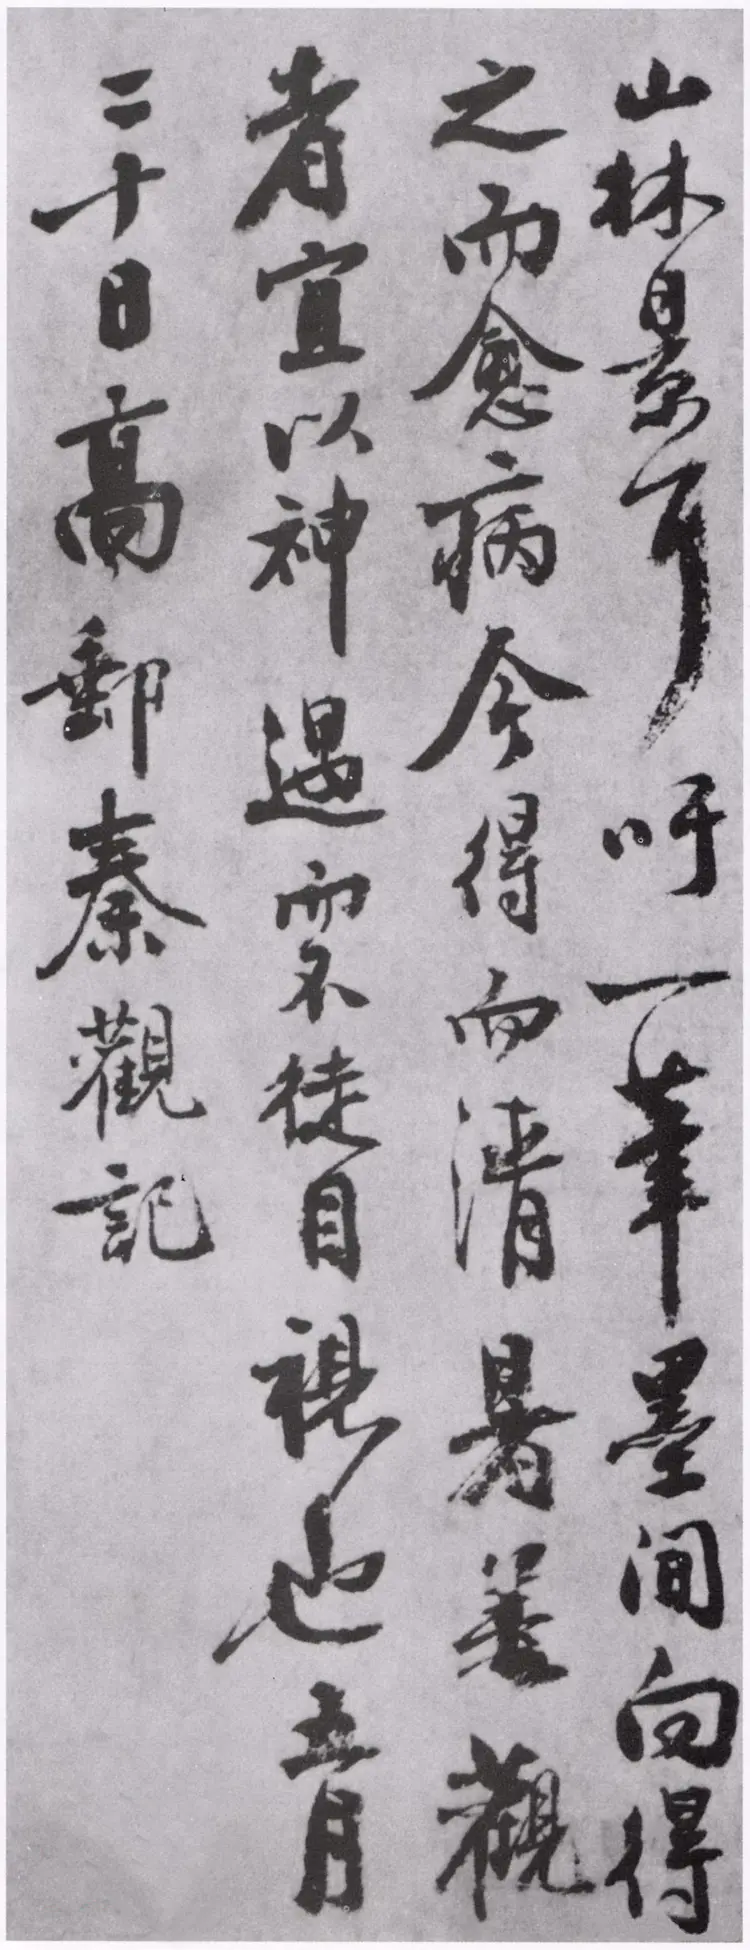 山林景耳吁一筆墨間向得
之而愈病今得而清暑善觀
者宜以神遇而不徒目視也五月
二十日高郵秦觀記